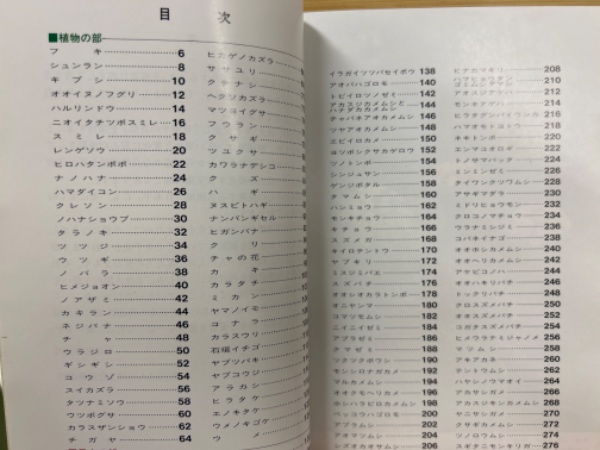 目次
■植物の部
フキ 6
シュンラン 8
キブシ 10
オオイヌノフグリ 12
ハルリンドウ 14
ニオイタチツボスミレ 16
スミレ 18
レンゲソウ 20
ヒロハタンポポ 22
ナノハナ 24
ハマダイコン 26
クレソン 28
ノハナショウブ 30
タラノキ 32
ツツジ 34
ウツギ 36
ノバラ 38
ヒメジョオン 40
ノアザミ 42
カキラン 44
ネジバナ 46
チャ 48
ウラジロ 50
ギシギシ 52
コウゾ 54
スイカズラ 56
タツナミソウ 58
ウツボグサ 60
カラスザンショウ 62
チガヤ 64
ヒカゲノカズラ
ササユリ
クチナシ
ヘクソカズラ
マツヨイグサ
フウラン
クサギ
ツユクサ
カワラナデシコ
クズ
ハギ
ヌスビトハギ
ナンバンギセル
ヒガンバナ
クリ
チャの花
カキ
カラタチ
ミカン
ヤマノイモ
コナラ
カラスウリ
石垣イチゴ
ヤブツバキ
ヤブコウジ
アラカシ
ヒラタケ
エノキタケ
ウメノキゴケ
ウメ
イラガイツツバセイボウ 138
アオバハゴロモ 140
トビイロツノゼミ 142
アカスジカメムシと
ハナダカカメムシ 144
チャバネアオカメムシ 146
ツヤアオカメムシ 148
エビイロカメムシ 150
ヨツボシクサカゲロウ 152
ツノトンボ 154
シンジュサン 156
ゲンジボタル 158
タマムシ 160
ハンミョウ 162
モンキチョウ 164
キチョウ 166
スズメガ 168
キイロテントウ 170
ヤブキリ 172
ミスジミバエ 174
スズバチ 176
オオシオカラトンボ 178
オニヤンマ 180
コマツモムシ 182
ニイニイゼミ 184
アブラゼミ 186
クマゼミ 188
ツクツクボウシ 190
モンシロナガカメムシ 192
マルカメムシ 194
オオクモヘリカメムシ 196
ホシハラビロカメムシ 198
ベッコウハゴロモ 200
アブラムシ 202
アオマツムシ 204
シズオカオサムシ 206
ヒナカマキリ 208
ハマヒョウタン
ゴミムシダマシ 210
アオスジアゲハ 212
モンキアゲハ 214
ヒラタグンバイウンカ 216
ハマオモトヨトウ 218
ネキトンボ 220
エンマコオロギ 222
トノサマバッタ 224
ミンミンゼミ 226
タイワンクツワムシ 228
アサギマダラ 230
ミドリヒョウモン 232
クロコノマチョウ 234
ウラナミシジミ 236
コバネイナゴ 238
オオホシカメムシ 240
オオヘリカメムシ 242
アヤヒコノハ 244
オオハキリバチ 246
トックリバチ 248
クロスズメバチ 250
オオスズメバチ 252
コガタスズメバチ 254
ヒメウラナミジャノメ 256
マツムシ 258
アキアカネ 260
テントウムシ 262
ハヤシノウマオイ 264
アカサシガメ 266
アカスジキンカメムシ 268
ヤニサシガメ 270
クサギカメムシ 272
ツノロウムシ 274
シモンオオサシガメ 276